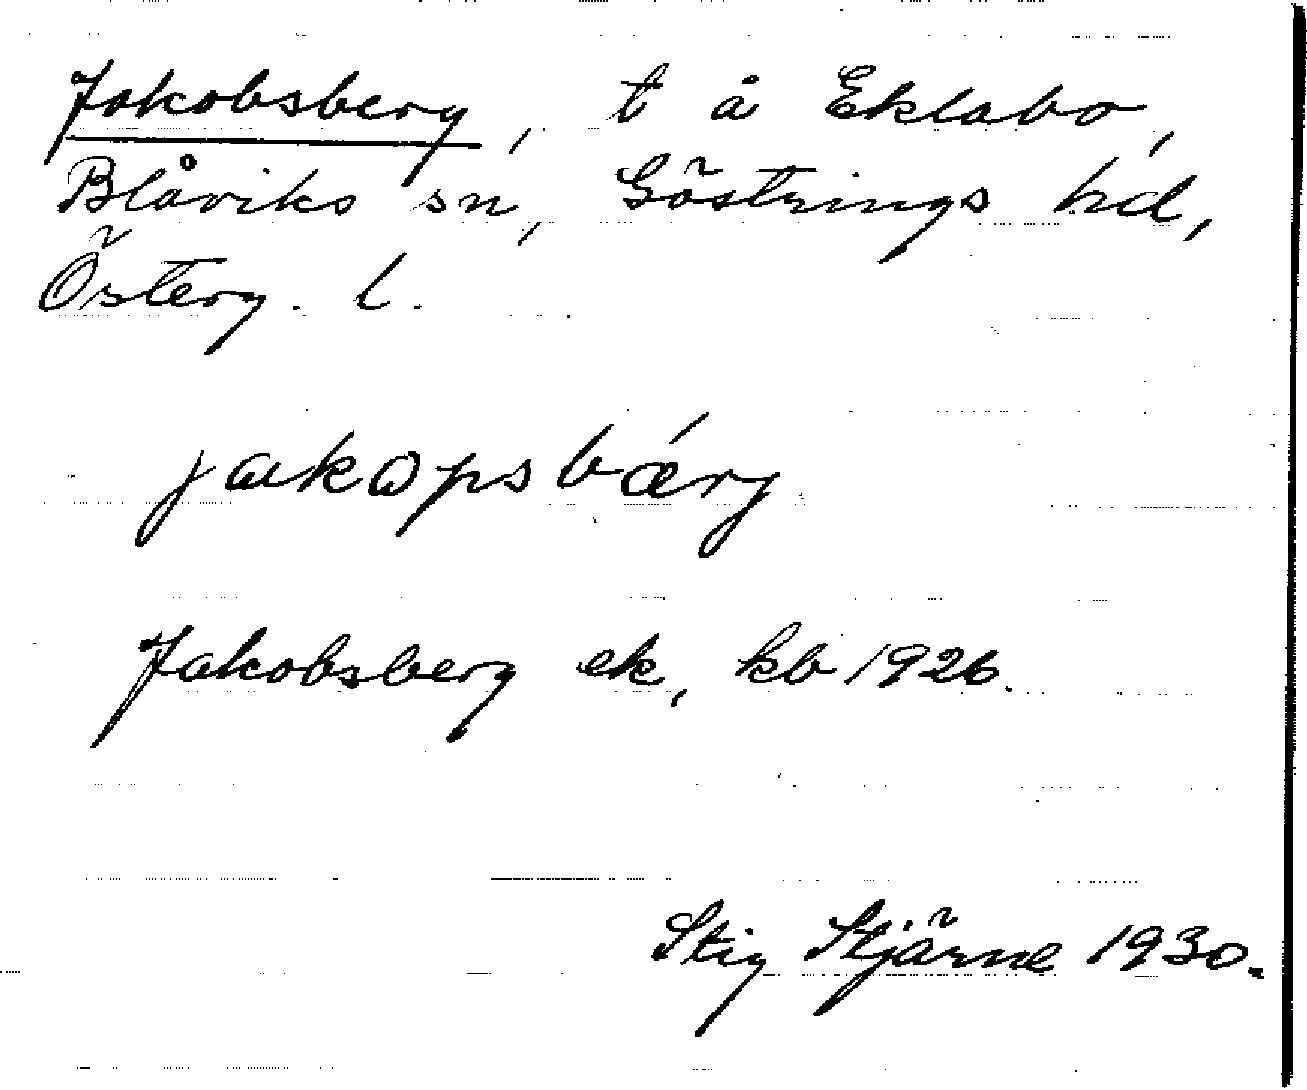 Jakobsberg, t å Eklabo,
Blåviks sn, Göstrings hd,
Österg. l.
jakopsbærj
Jakobsberg ek, kb 1926.
Stig Stjärne 1930.